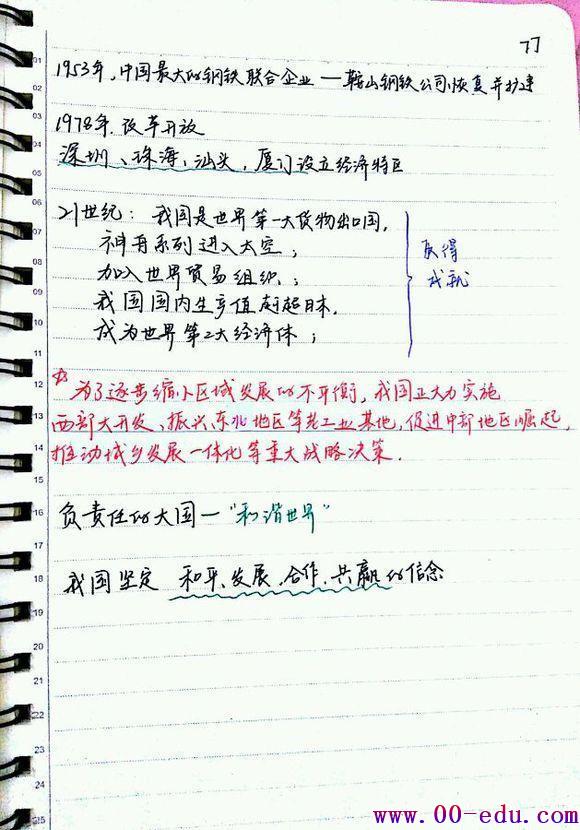 77
1953年,中国最大的钢铁联合企业—鞍山钢铁公司恢复并扩建
1978年.改革开放
深圳、珠海、汕头,厦门设立经济特区
21世纪: 我国是世界第一大货物出口国,
神舟系列进入太空;
加入世界贸易组织;
我国国内生产值赶超日本.
成为世界第2大经济体;
获得
成就
为了逐步缩小区域发展的不平衡,我国正大力实施
西部大开发、振兴东北地区等老工业基地,促进中部地区崛起,
推动城乡发展一体化等重大战略决策.
负责任的大国—"和谐世界"
我国坚定 和平、发展、合作、共赢的信念
01
02
03
04
05
06
07
08
09
10
11
12
13
14
15
16
17
18
19
20
21
22
23
24
25
www.00-edu.com